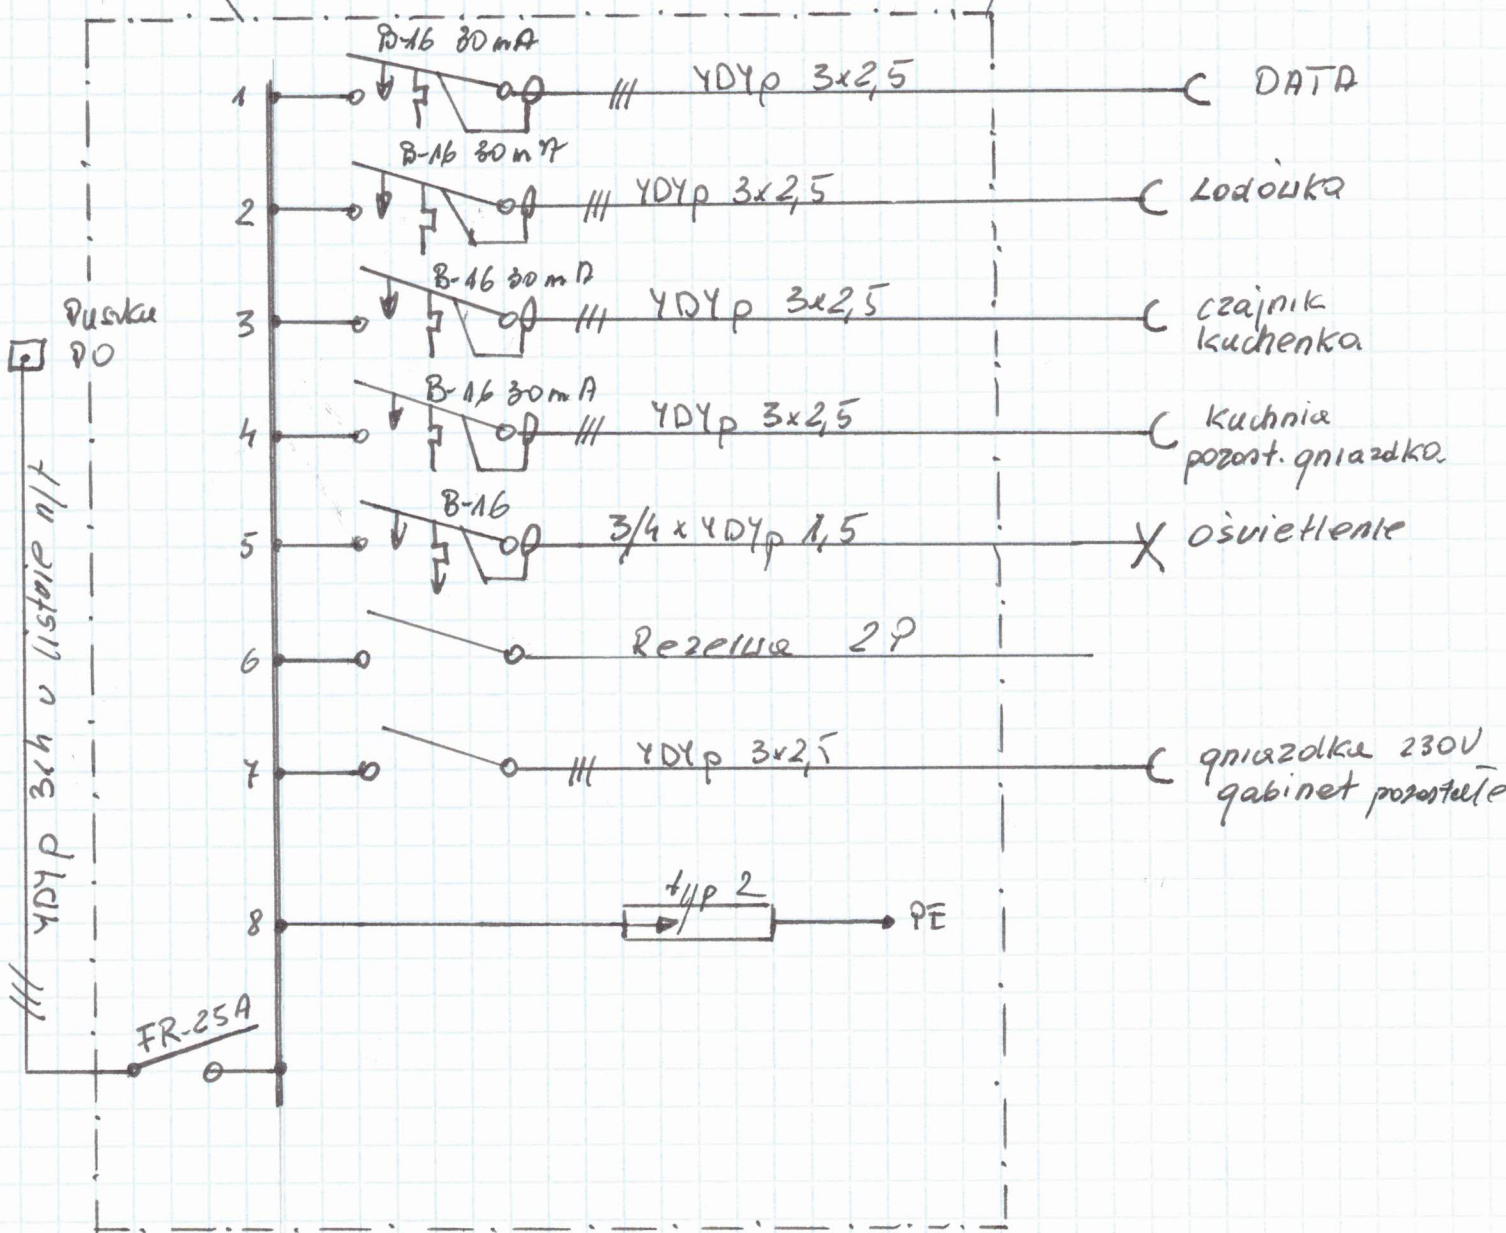 B-16 30mA
1
YDYp 3x2,5
DATA
B-16 30mA
2
YDYp 3x2,5
Lodówka
B-16 30mA
3
YDYp 3x2,5
czajnik
kuchenka
Puszka
PO
B-16 30mA
4
YDYp 3x2,5
kuchnia
pozost. gniazdka
B-16
5
3/4 x YDYp 1,5
oświetlenie
6
Rezerwa 2P
7
YDYp 3x2,5
gniazdka 230V
gabinet pozostałe
YDYp 3ch w listwie n/t
8
typ 2
PE
FR-25A